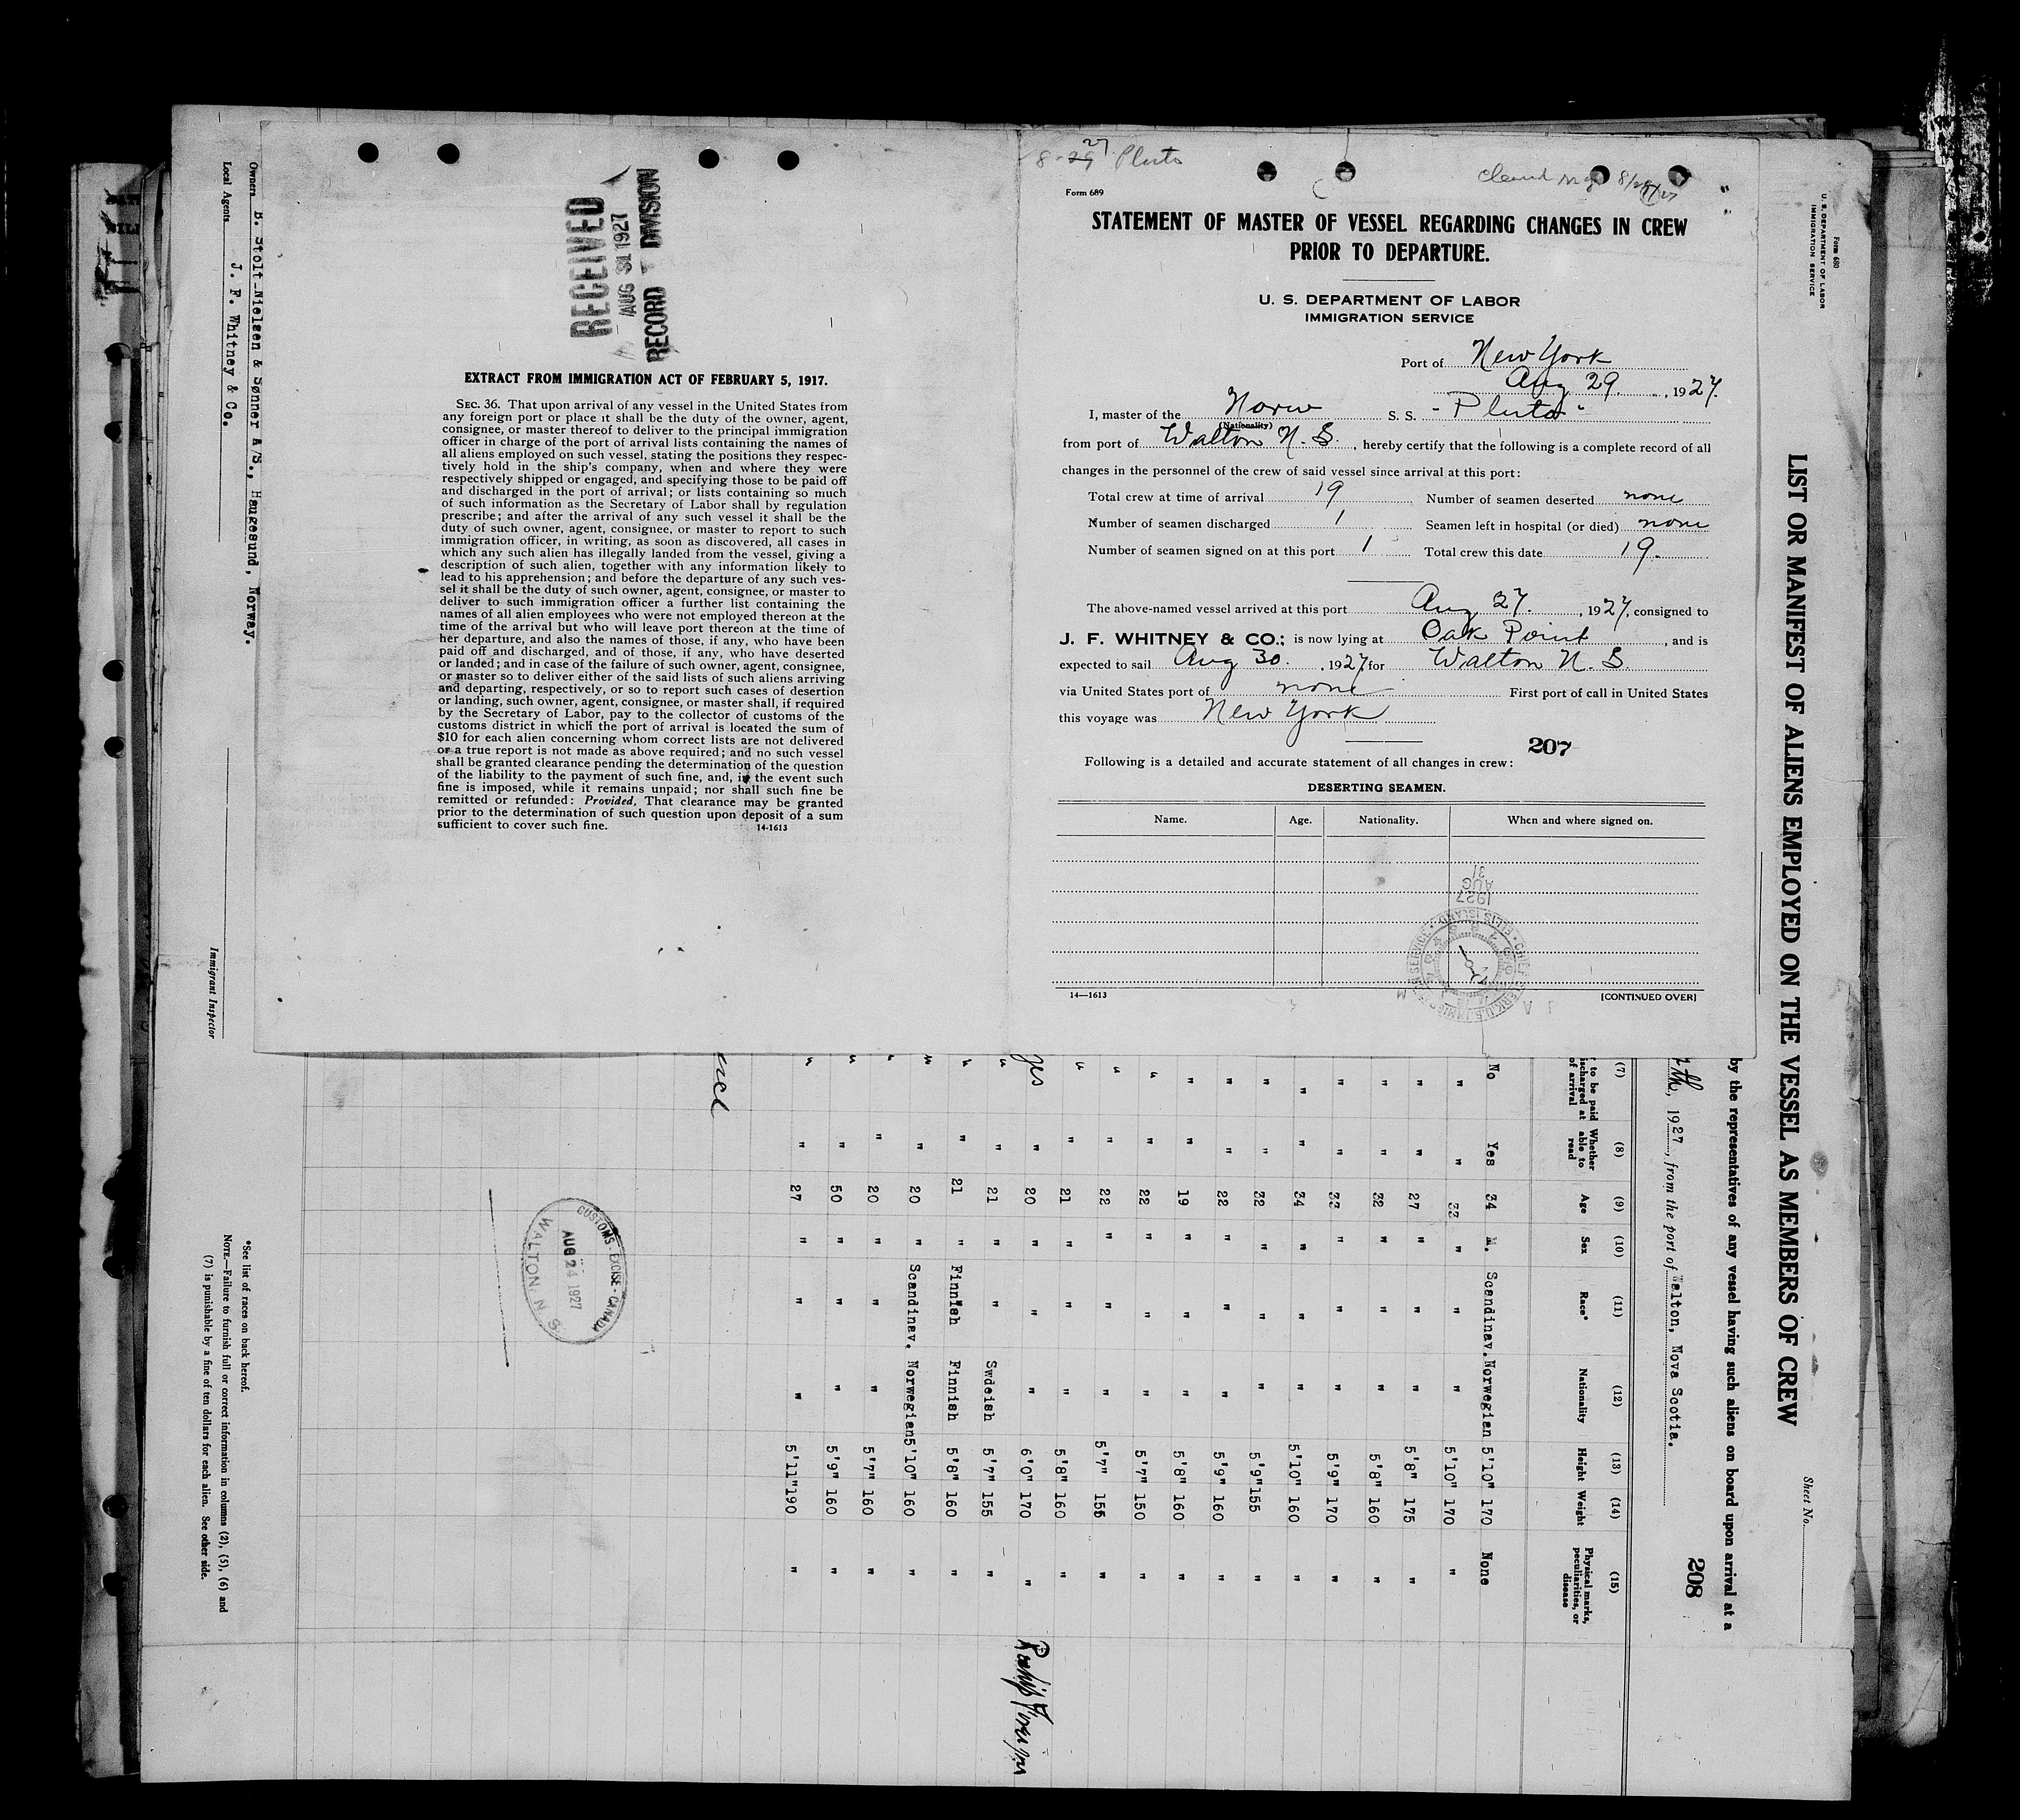 8-29 27 Pluto
8/29/27
Form 689
STATEMENT OF MASTER OF VESSEL REGARDING CHANGES IN CREW
PRIOR TO DEPARTURE.
U. S. DEPARTMENT OF LABOR
IMMIGRATION SERVICE
Port of New York
Aug 29. , 1927.
I, master of the Norw S. S. "Pluto"
(Nationality)
from port of Walton N. S. , hereby certify that the following is a complete record of all
changes in the personnel of the crew of said vessel since arrival at this port:
Total crew at time of arrival 19 Number of seamen deserted none
Number of seamen discharged 1 Seamen left in hospital (or died) none
Number of seamen signed on at this port 1 Total crew this date 19.
The above-named vessel arrived at this port Aug 27. , 1927, consigned to
J. F. WHITNEY & CO.; is now lying at Oak Point , and is
expected to sail Aug 30. , 1927, for Walton N. S.
via United States port of none First port of call in United States
this voyage was New York
207
Following is a detailed and accurate statement of all changes in crew:
DESERTING SEAMEN.
Name. Age. Nationality. When and where signed on.
1927
AUG
31
CHIEF CLERK U.S. IMMIGRATION SERVICE · ELLIS ISLAND ·
14—1613 [CONTINUED OVER]
RECEIVED
AUG 31 1927
RECORD DIVISION
EXTRACT FROM IMMIGRATION ACT OF FEBRUARY 5, 1917.
SEC. 36. That upon arrival of any vessel in the United States from
any foreign port or place it shall be the duty of the owner, agent,
consignee, or master thereof to deliver to the principal immigration
officer in charge of the port of arrival lists containing the names of
all aliens employed on such vessel, stating the positions they respec-
tively hold in the ship's company, when and where they were
respectively shipped or engaged, and specifying those to be paid off
and discharged in the port of arrival; or lists containing so much
of such information as the Secretary of Labor shall by regulation
prescribe; and after the arrival of any such vessel it shall be the
duty of such owner, agent, consignee, or master to report to such
immigration officer, in writing, as soon as discovered, all cases in
which any such alien has illegally landed from the vessel, giving a
description of such alien, together with any information likely to
lead to his apprehension; and before the departure of any such ves-
sel it shall be the duty of such owner, agent, consignee, or master to
deliver to such immigration officer a further list containing the
names of all alien employees who were not employed thereon at the
time of the arrival but who will leave port thereon at the time of
her departure, and also the names of those, if any, who have been
paid off and discharged, and of those, if any, who have deserted
or landed; and in case of the failure of such owner, agent, consignee,
or master so to deliver either of the said lists of such aliens arriving
and departing, respectively, or so to report such cases of desertion
or landing, such owner, agent, consignee, or master shall, if required
by the Secretary of Labor, pay to the collector of customs of the
customs district in which the port of arrival is located the sum of
$10 for each alien concerning whom correct lists are not delivered
or a true report is not made as above required; and no such vessel
shall be granted clearance pending the determination of the question
of the liability to the payment of such fine, and, in the event such
fine is imposed, while it remains unpaid; nor shall such fine be
remitted or refunded: Provided, That clearance may be granted
prior to the determination of such question upon deposit of a sum
sufficient to cover such fine.
14-1613
Form 680
U. S. DEPARTMENT OF LABOR
IMMIGRATION SERVICE
Sheet No.
LIST OR MANIFEST OF ALIENS EMPLOYED ON THE VESSEL AS MEMBERS OF CREW
by the representatives of any vessel having such aliens on board upon arrival at a
208
th, 1927, from the port of Walton, Nova Scotia.
(7) (8) (9) (10) (11) (12) (13) (14) (15)
to be paid Whether Age Sex Race* Nationality Height Weight Physical marks,
discharged at able to peculiarities, or
of arrival read disease
No Yes 34 M. Scandinav. Norwegian 5'10" 170 None
" " 33 " " " 5'10" 170 "
" " 27 " " " 5'8" 175 "
" " 32 " " " 5'8" 160 "
" " 33 " " " 5'9" 170 "
" " 34 " " " 5'10" 160 "
" " 32 " " " 5'9" 155 "
" " 22 " " " 5'9" 160 "
" " 19 " " " 5'8" 160 "
" " 22 " " " 5'7" 150 "
" " 22 " " " 5'7" 155 "
" " 21 " " " 5'8" 160 "
yes " 20 " " " 6'0" 170 "
" " 21 " " Swdeish 5'7" 155 "
" " 21 " Finnish Finnish 5'8" 160 "
" " 20 " Scandinav. Norwegian 5'10" 160 "
" " 20 " " " 5'7" 160 "
" " 50 " " " 5'9" 160 "
" " 27 " " " 5'11" 190 "
CUSTOMS - EXCISE - CANADA
AUG 24 1927
WALTON, N. S.
Owners B. Stolt-Nielsen & Sønner A/S., Haugesund, Norway.
Local Agents J. F. Whitney & Co.
Immigrant Inspector
*See list of races on back hereof.
NOTE.—Failure to furnish full or correct information in columns (2), (5), (6) and
(7) is punishable by a fine of ten dollars for each alien. See other side.